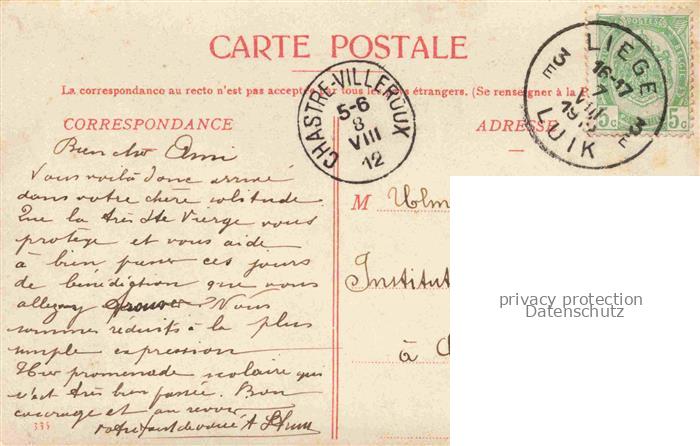 CARTE POSTALE
La correspondance au recto n'est pas acceptée par tous les pays étrangers. (Se renseigner à la P
CORRESPONDANCE
ADRESSE
CHASTRE-VILLEROUX
5-6
8
VIII
12
LIEGE
3E 3E
16-17
7
VIII
LUIK
POSTES
5c 5c
Bien cher Ami
Vous voilà donc arrivé
dans votre chère solitude
Que la très Ste Vierge vous
protège et vous aide
à bien passer ces jours
de bénédiction que vous
allez y Nous
sommes réduits à la plus
simple expression
Hier promenade scolaire qui
s'est très bien passée. Bon
courage et au revoir
votre tout dévoué A
M
Institut
à
privacy protection
Datenschutz